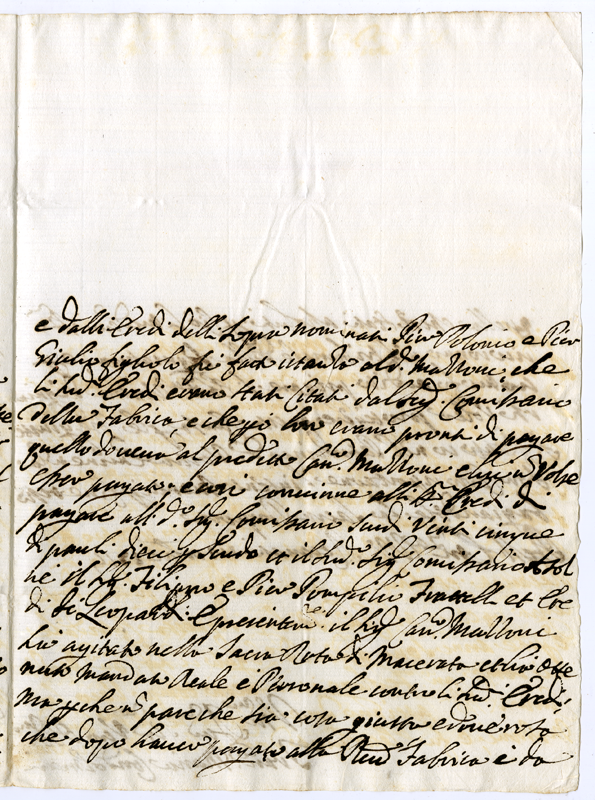 e dalli Eredi delli sopra nominati Pier Polonio e Pier
Giulio figliolo fù fatt' istanza al d.º Malloni che
li sud.ⁱ Eredi erano stati Citati dal sud.º Comissario
della Fabrica, e che però loro erano pronti di pagare
quello doveva al predetto Can.º Malloni e lui n' Volse
esser pagato; e così convenne alli d.ⁱ Eredi di
pagare all d.º Sig.ʳ Comissario Scudi Vinti cinque
di pauli dieci p Scudo et il sud.º Sig.ʳ Comissario Asol
né il Sig.ʳ Filippo e Pier Pompilio Fratelli et Ere
di de Leopardi: E presentem.ᵉ il Sig.ʳ Can.º Malloni
hà agitato nella Sacra Rota di Macerata et hà otte
nuto mandato Reale e Personale contro li sud.ⁱ Eredi
ma p che n' pare che sia cosa giusta e doverosa
che dopo hanno pagato alla Rev.ᵈᵃ Fabrica e da